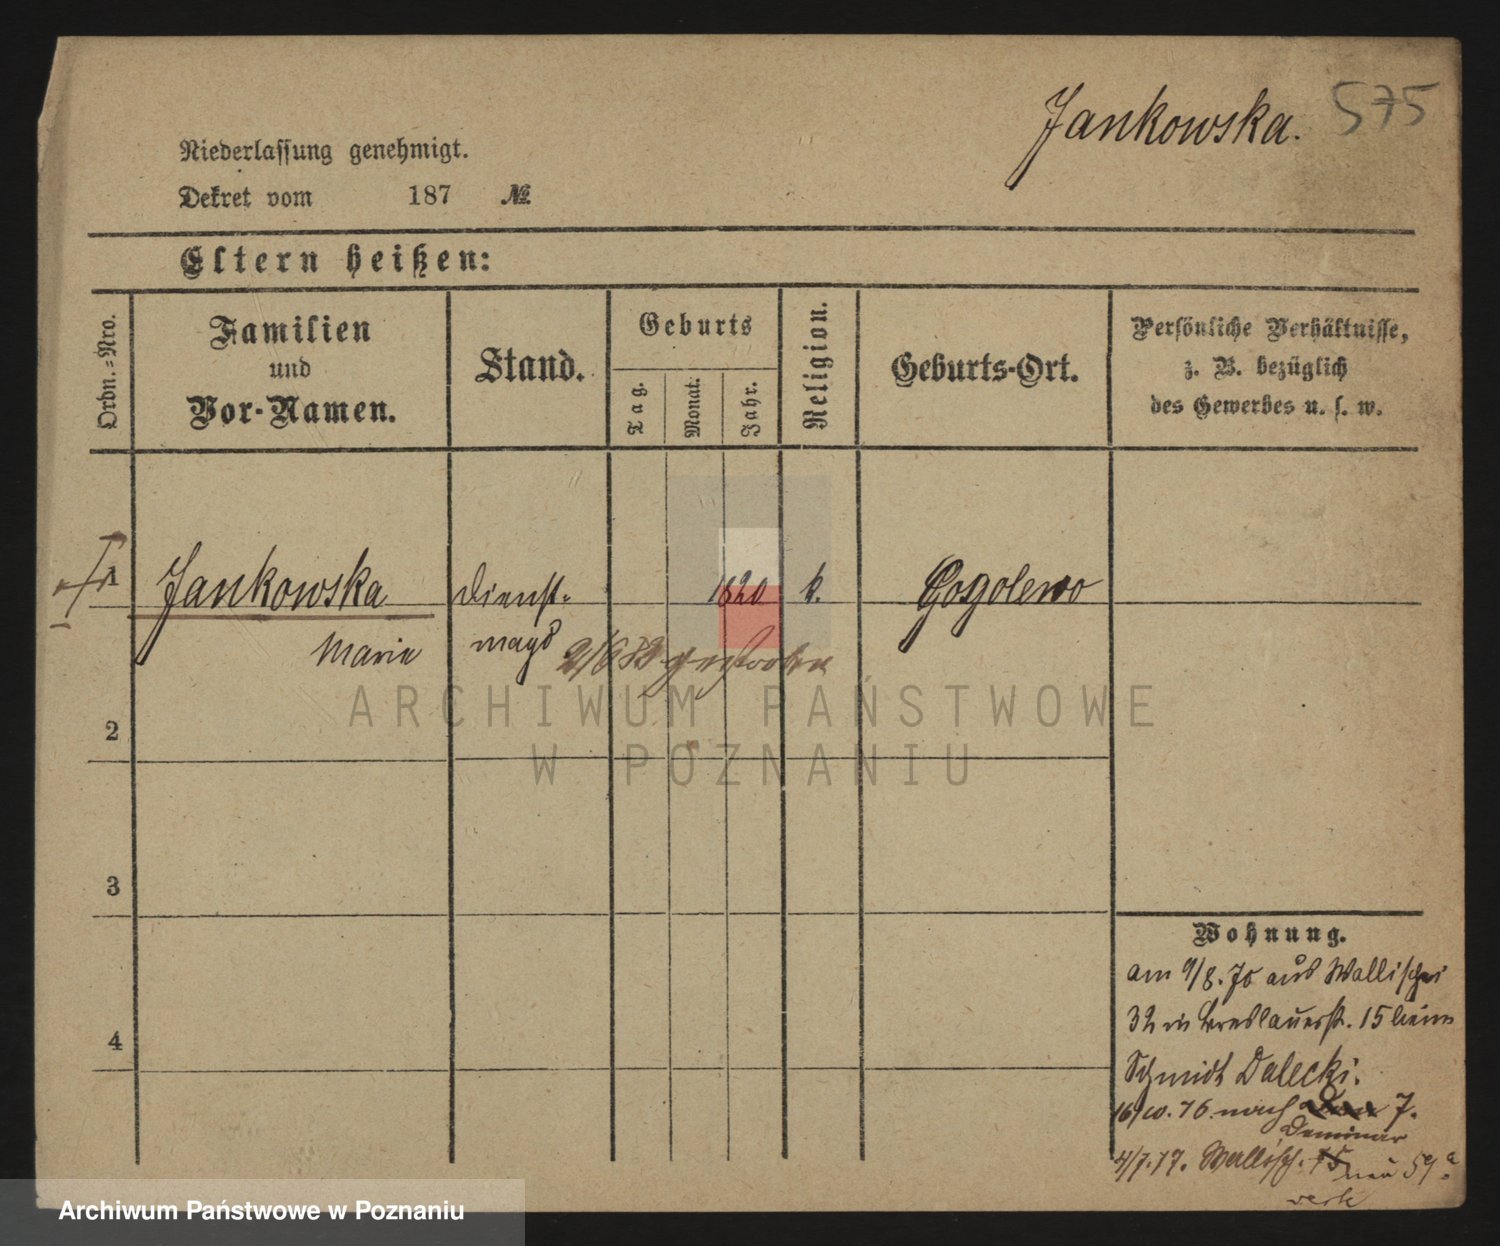 Jankowska. 575
Niederlassung genehmigt.
Dekret vom 187 №
Eltern heißen:
Ordn.-Nro.
Familien
und
Vor-Namen.
Stand.
Geburts
Tag.
Monat.
Jahr.
Religion.
Geburts-Ort.
Persönliche Verhältnisse,
z. B. bezüglich
des Gewerbes u. s. w.
1 Jankowska Dienst- 1820 k. Gogolewo
Marie magd
gestorben
ARCHIWUM PAŃSTWOWE
W POZNANIU
2
3
4
Wohnung.
am 9/8. 70 aus Wallischei
32 in Breslauerst. 15 beim
Schmidt Dalecki.
16/10. 76. nach 7.
Seminar
4/7. 77. Wallisch. 15 neu
Archiwum Państwowe w Poznaniu